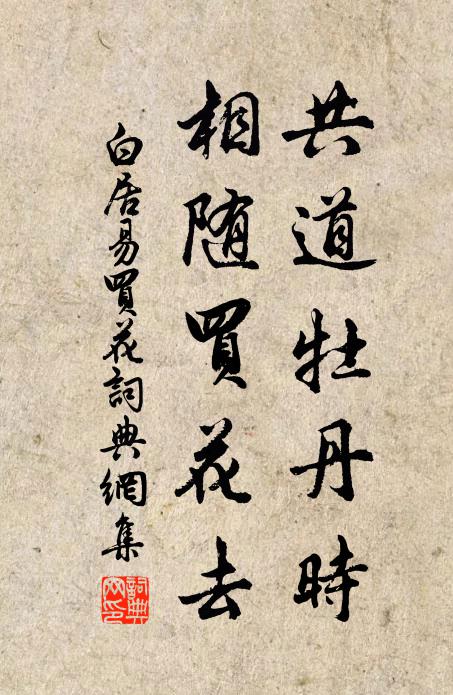 共道牡丹時
相随買花去
白居易買花詞典網集
詞典
网印